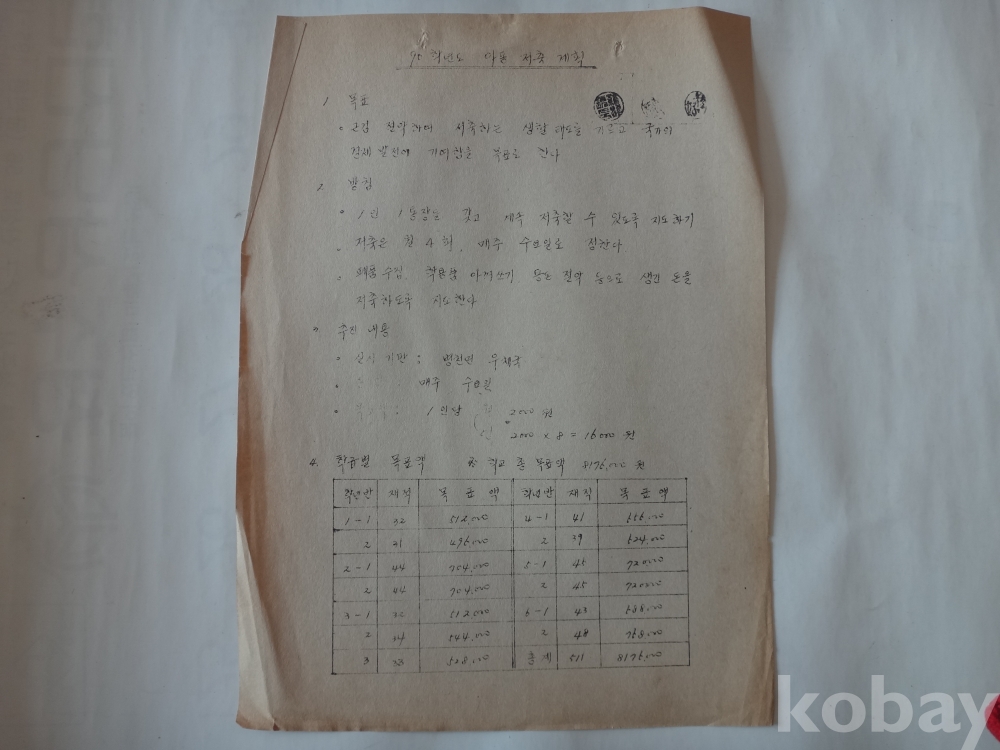 학년도 아동 저축 계획
1. 목표
근검 절약하며 저축하는 생활 태도를 기르고 국가의
경제 발전에 기여함을 목표로 한다
2. 방침
1인 1통장을 갖고 계속 저축할 수 있도록 지도하기
저축은 월 4회, 매주 수요일로 정한다.
폐품 수집, 학용품 아껴쓰기 용돈 절약 등으로 생긴 돈을
저축하도록 지도한다
3. 추진 내용
실시 기관 : 우체국
매주 수요일
1인당 월 2000 원
년 2000 x 8 = 16000 원
4. 학급별 목표액 학교 총 목표액 8176,000 원
학년반 재적 목표액 학년반 재적 목표액
1-1 32 512,000 4-1 41 656,000
2 31 496,000 2 39 624,000
2-1 44 704,000 5-1 45 720,000
2 44 704,000 2 45 720,000
3-1 32 512,000 6-1 43 688,000
2 34 544,000 2 48 768,000
3 33 528,000 총계 511 8176,000
kobay